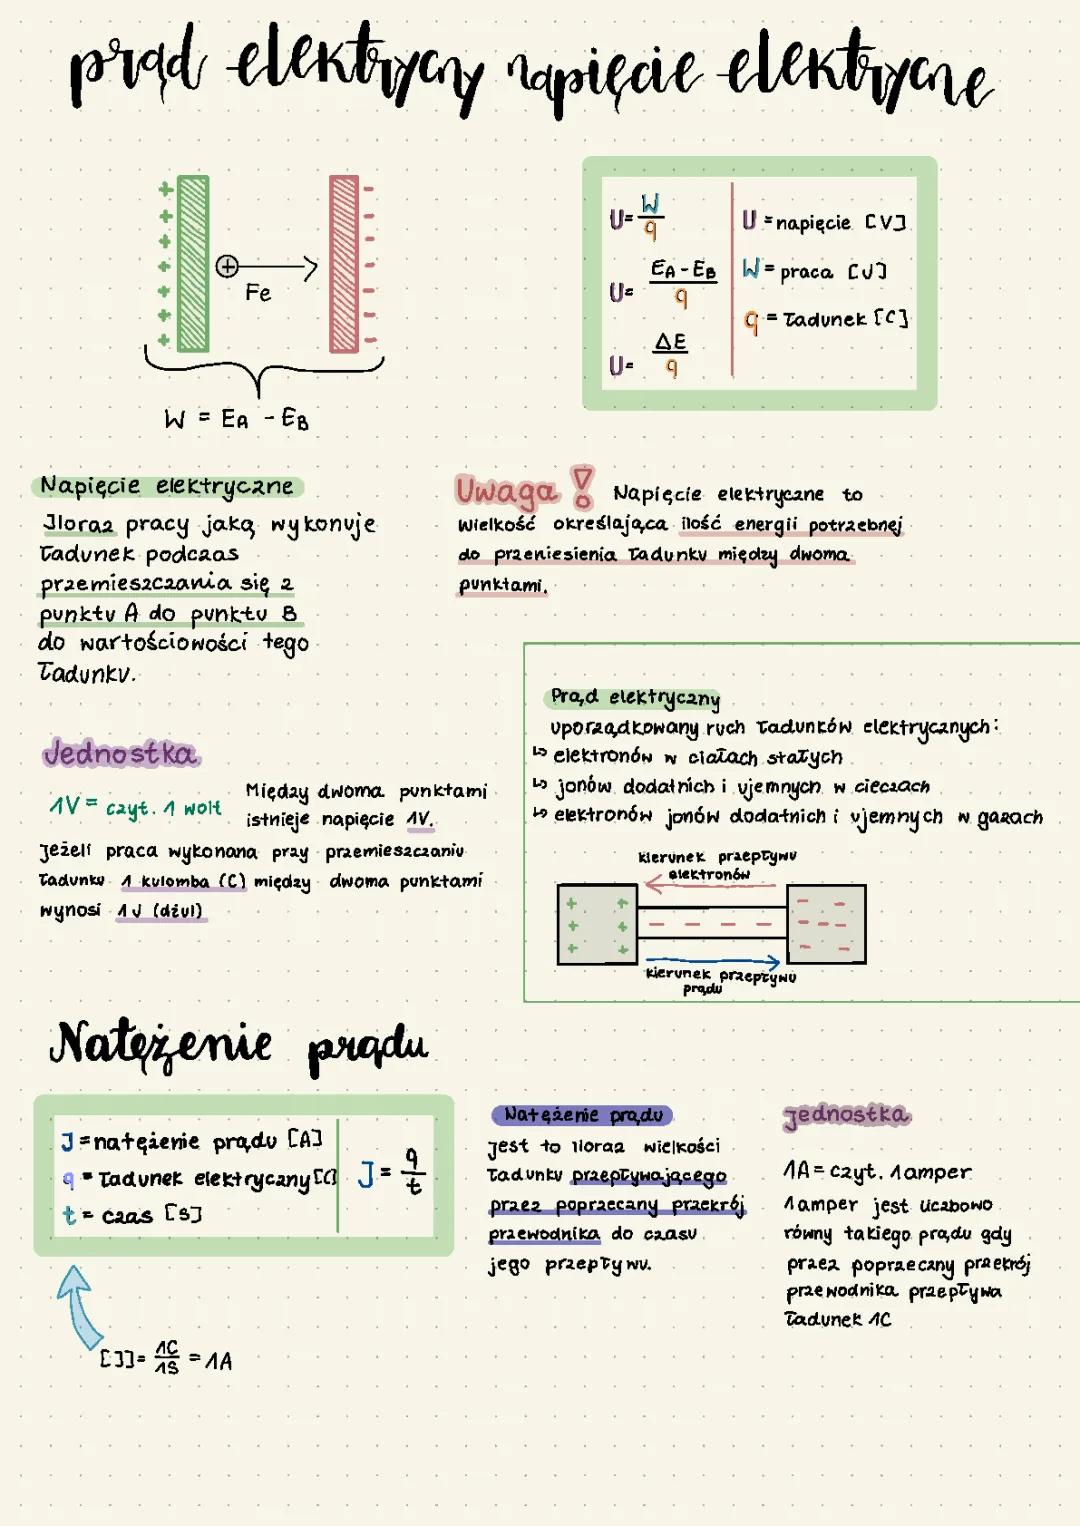 prąd elektryczny napięcie elektryczne
+ + + + + + +
- - - - - - -
+
Fe
W = EA - EB
U = W/q
U = EA - EB/q
U = ΔE/q
U = napięcie [V]
W = praca [J]
q = ładunek [C]
Napięcie elektryczne
Iloraz pracy jaką wykonuje
ładunek podczas
przemieszczania się z
punktu A do punktu B
do wartościowości tego
ładunku.
Uwaga! Napięcie elektryczne to
wielkość określająca ilość energii potrzebnej
do przeniesienia ładunku między dwoma
punktami.
Jednostka
1V = czyt. 1 wolt
Między dwoma punktami
istnieje napięcie 1V.
Jeżeli praca wykonana przy przemieszczaniu
ładunku 1 kulomba (C) między dwoma punktami
wynosi 1J (dżul)
Prąd elektryczny
uporządkowany ruch ładunków elektrycznych:
↳ elektronów w ciałach stałych
↳ jonów dodatnich i ujemnych w cieczach
↳ elektronów jonów dodatnich i ujemnych w gazach
kierunek przepływu
elektronów
+ + + + + +
- - - - -
- - - - - - -
kierunek przepływu
prądu
Natężenie prądu
J = natężenie prądu [A]
q = ładunek elektryczny [C]
t = czas [s]
J = q/t
[J] = 1C/1S = 1A
Natężenie prądu
jest to iloraz wielkości
ładunku przepływającego
przez poprzeczny przekrój
przewodnika do czasu
jego przepływu.
jednostka
1A = czyt. 1 amper
1 amper jest liczbowo
równy takiego prądu gdy
przez poprzeczny przekrój
przewodnika przepływa
ładunek 1C